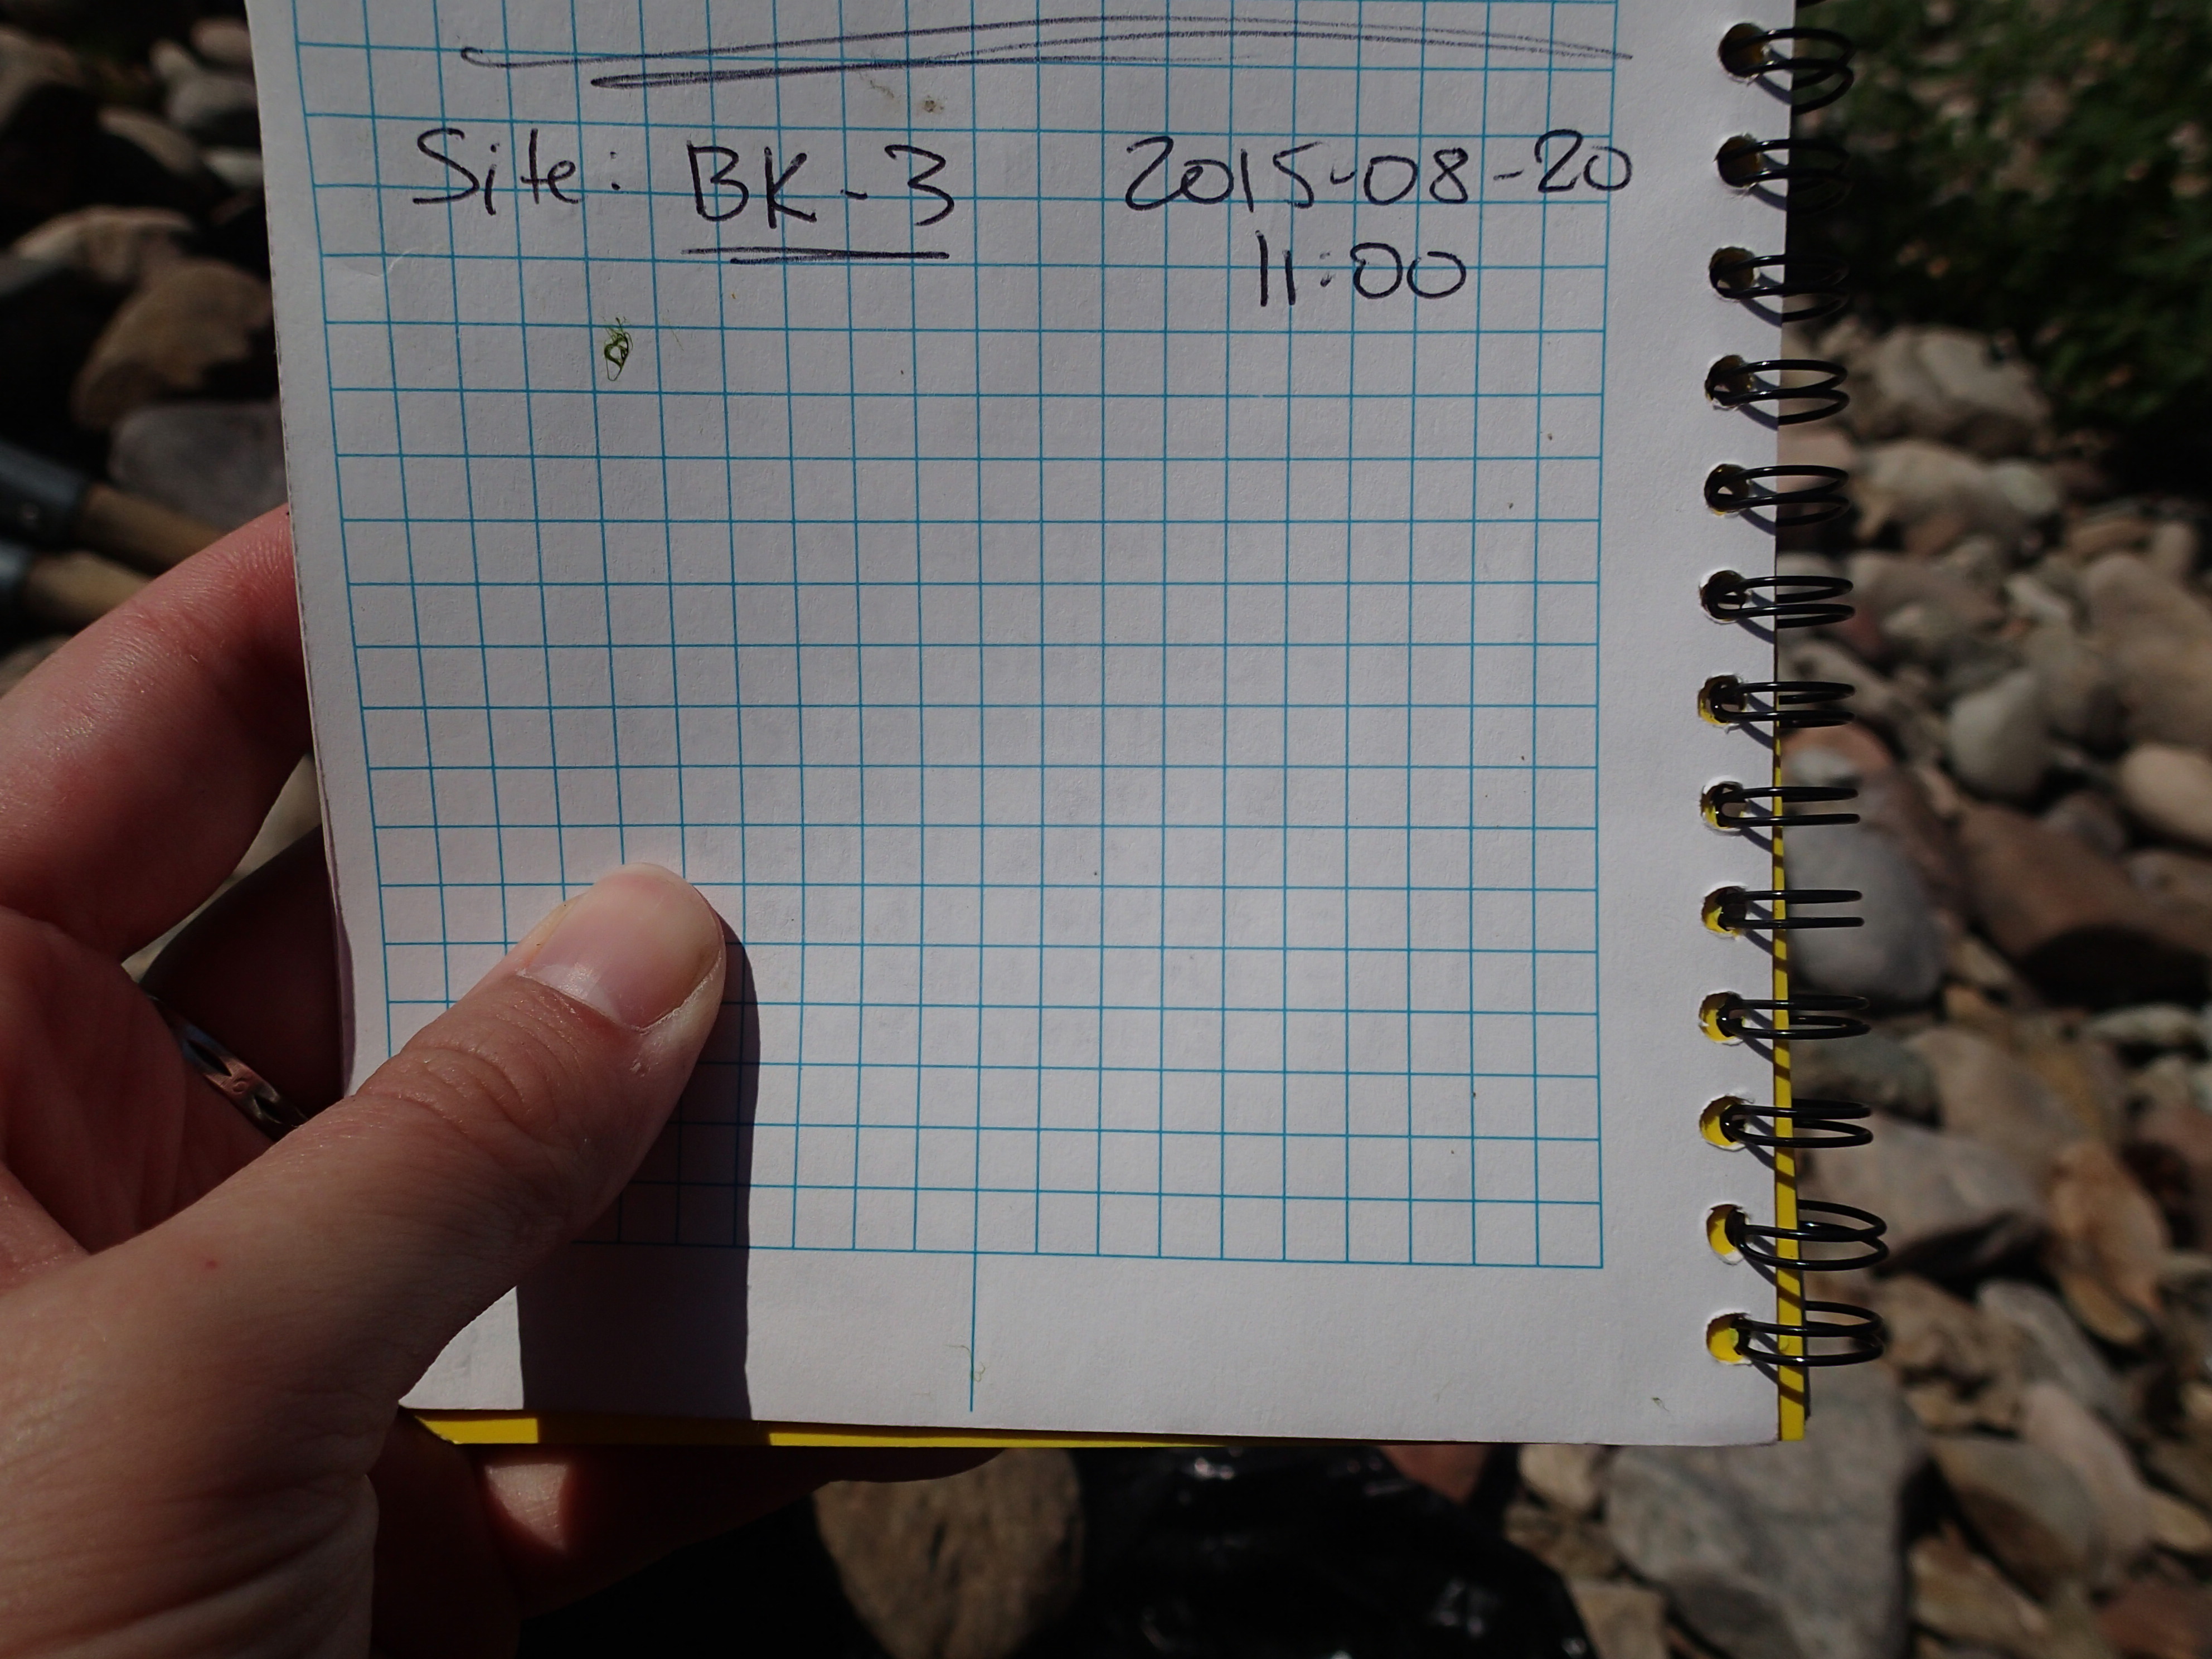 Site: BK-3 2015-08-20
11:00